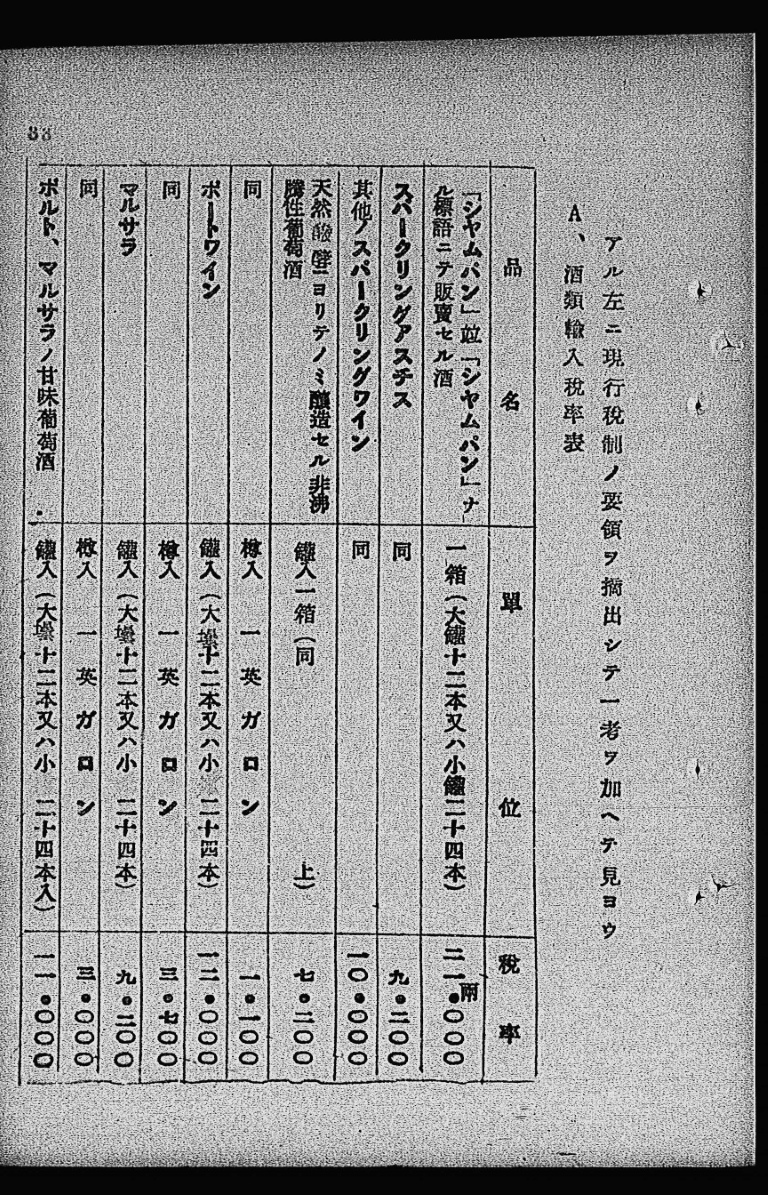 アル左ニ現行稅制ノ要領ヲ摘出シテ一考ヲ加ヘテ見ヨウ
A、酒類輸入稅率表
品名 單位 稅率
「シヤムパン」竝「シヤムパン」ナ
ル標語ニテ販賣セル酒
一箱（大罎十二本又ハ小罎二十四本）
兩
二一・〇〇〇
スパークリングアスチス 同 九・二〇〇
其他ノスパークリングワイン 同 一〇・〇〇〇
天然醱酵ニヨリテノミ釀造セル非沸
騰性葡萄酒
罎入一箱（同上） 七・二〇〇
同 樽入一英ガロン 一・一〇〇
ポートワイン 罎入（大罎十二本又ハ小 二十四本） 一二・〇〇〇
同 樽入一英ガロン 三・七〇〇
マルサラ 罎入（大罎十二本又ハ小 二十四本） 九・二〇〇
同 樽入一英ガロン 三・〇〇〇
ポルト、マルサラノ甘味葡萄酒 罎入（大罎十二本又ハ小 二十四本入） 一一・〇〇〇